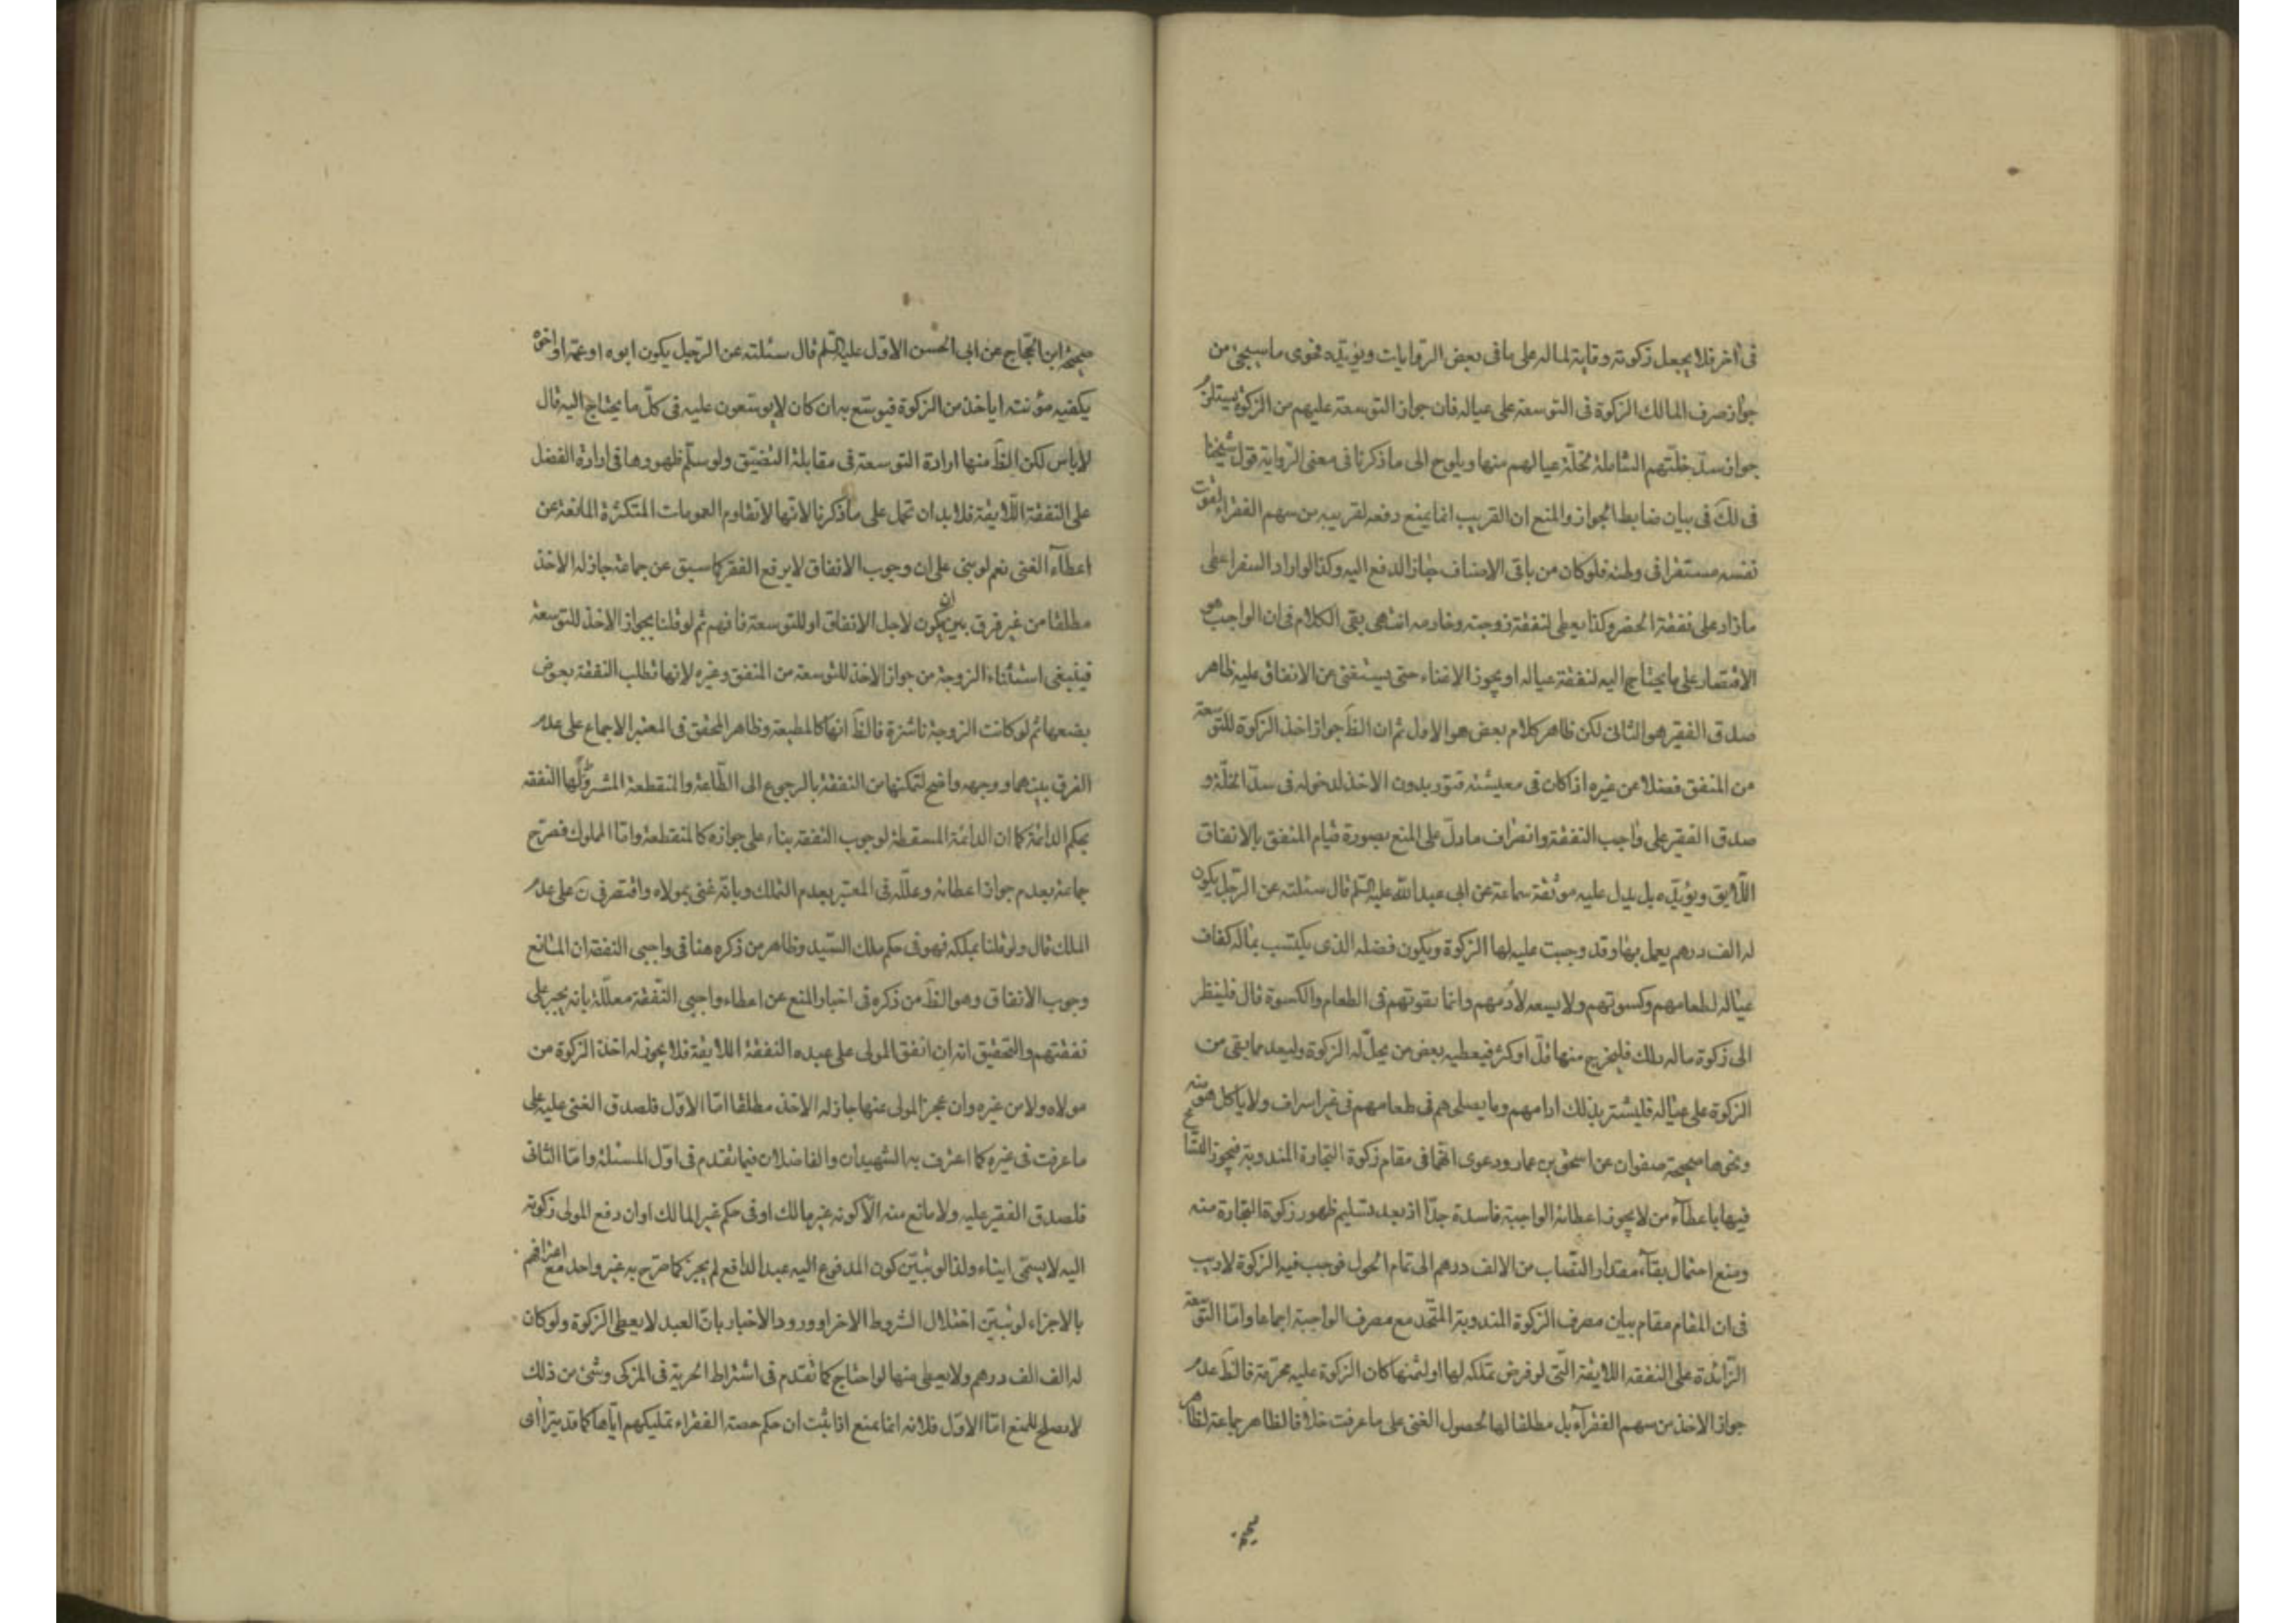 فى آخر فلا يجعل زكوته وقاية لماله على ما فى بعض الروايات ويؤيّده فحوى ما سيجئ من
جواز صرف المالك الزكوة فى التوسعة على عياله فان جواز التوسعة عليهم من الزكوة يستلزم
جواز سدّ خلّتهم الشاملة لخلّة عيالهم منها ويلوح الى ما ذكرنا فى معنى الرواية قول شيخنا
فى لك فى بيان ضابط الجواز والمنع ان القريب انما يمنع دفعه لقريبه من سهم الفقراء لقوت
نفسه مستقرا فى وطنه فلو كان من باقى الاصناف جاز الدفع اليه وكذا لو اراد السفر اعطى
ما زاد على نفقة الحضر وكذا يعطى لنفقة زوجته وخادمه انتهى بقى الكلام فى ان الواجب هو
الاقتصار على ما يحتاج اليه لنفقة عياله او يجوز الاغناء حتى يستغنى عن الانفاق عليه ظاهر
صدق الفقير هو الثانى لكن ظاهر كلام بعض هو الاول ثم ان الظَ جواز اخذ الزكوة للتوسعة
من المنفق فضلا عن غيره اذا كان فى معيشته قتور بدون الاخذ لدخوله فى سدّ الخلّة و
صدق الفقير على واجب النفقة وانصراف ما دلّ على المنع بصورة قيام المنفق بالانفاق
اللّايق ويؤيّده بل يدل عليه موثقة سماعة عن ابى عبد الله عليه السّلم قال سئلته عن الرّجل يكون
له الف درهم يعمل بها وقد وجبت عليه لها الزكوة ويكون فضله الذى يكتسب بماله كفاف
عياله لطعامهم وكسوتهم ولا يسعه لأدمهم وانما يقوتهم فى الطعام والكسوة قال فلينظر
الى زكوة ماله ذلك فليخرج منها قلّ او كثر فيعطيه بعض من يحلّ له الزكوة وليعد بما بقى من
الزكوة على عياله فليشتر بذلك ادامهم وما يصلحهم فى طعامهم فى غير اسراف ولا ياكل هو منه
ونحوها صحيحة صفوان عن اسحق بن عمار ودعوى انّها فى مقام زكوة التجارة المندوبة فيجوز التسامح
فيها باعطاء من لا يجوز اعطائه الواجبة فاسدة جدّا اذ بعد تسليم ظهور زكوة التجارة منه
ومنع احتمال بقاء مقدار النّصاب من الالف درهم الى تمام الحول فوجب فيه الزكوة لا ريب
فى ان المقام مقام بيان مصرف الزكوة المندوبة المتّحد مع مصرف الواجبة اجماعا وامّا التوسعة
الزّائدة على النفقه اللايقة الّتى لو فرض تملكه لها او لثمنها كان الزكوة عليه محرّمة فالظَ عدم
جواز الاخذ من سهم الفقرآء بل مطلقا لها لحصول الغنى على ما عرفت خلافا لظاهر جماعة لظاهر
صحيحة
صحيحة ابن الحجاج عن ابى الحسن الاوّل عليه السّلم قال سئلته عن الرّجل يكون ابوه او عمّه او اخوه
يكفيه مؤنته ايأخذ من الزكوة فيوسّع به ان كان لا يوسّعون عليه فى كلّ ما يحتاج اليه قال
لا باس لكن الظَ منها ارادة التوسعة فى مقابلة التضيّق ولو سلّم ظهورها فى ارادة الفضل
على النفقة اللّايقة فلا بد ان تحمل على ما ذكرنا لانّها لا تقاوم العمومات المتكثرة المانعة عن
اعطآء الغنى نعم لو بنى على ان وجوب الانفاق لا يرفع الفقر كما سبق عن جماعة جاز له الاخذ
مطلقا من غير فرق بين ان يكون لاجل الانفاق او للتوسعة فافهم ثم لو قلنا بجواز الاخذ للتوسعة
فينبغى استثناء الزوجة من جواز الاخذ للتوسعة من المنفق وغيره لانها تطلب النفقة بعوض
بضعها ثم لو كانت الزوجة ناشزة فالظَ انها كالمطيعة وظاهر المحقق فى المعتبر الاجماع على عدم
الفرق بينهما ووجهه واضح لتمكنها من النفقة بالرجوع الى الطّاعة والمنقطعة المشروط لها النفقه
بحكم الدائمة كما ان الدائمة المسقطة لوجوب النفقه بناء على جوازه كالمنقطعة وامّا المملوك فصرّح
جماعة بعدم جواز اعطائه وعلّله فى المعتبر بعدم التملك وبانّه غنى بمولاه واقتصر فى نَ على عدم
الملك قال ولو قلنا بملكه فهو فى حكم ملك السّيد وظاهر من ذكره هنا فى واجبى النفقه ان المانع
وجوب الانفاق وهو الظَ من ذكره فى اخبار المنع عن اعطاء واجبى النّفقة معلّلة بانه يجبر على
نفقتهم والتحقيق انه ان انفق المولى على عبده النفقة اللايقة فلا يجوز له اخذ الزكوة من
مولاه ولا من غيره وان عجز المولى عنها جاز له الاخذ مطلقا امّا الاوّل فلصدق الغنى عليه على
ما عرفت فى غيره كما اعترف به الشهيدان والفاضلان فيما تقدم فى اوّل المسئلة وامّا الثانى
فلصدق الفقير عليه ولا مانع منه الّا كونه غير مالك او فى حكم غير المالك او ان دفع المولى زكوته
اليه لا يسمّى ايتاء ولذا لو تبيّن كون المدفوع اليه عبد الدافع لم يجز كما صرّح به غير واحد مع اعترافهم
بالاجزاء لو تبيّن اختلال الشروط الاخر او ورود الاخبار بانّ العبد لا يعطى الزكوة ولو كان
له الف الف درهم ولا يعطى منها لو احتاج كما تقدم فى اشتراط الحرية فى المزكى وشئ من ذلك
لا يصلح للمنع امّا الاوّل فلانه انما يمنع اذا ثبت ان حكم حصة الفقراء تمليكهم ايّاها كما قد يتراأى